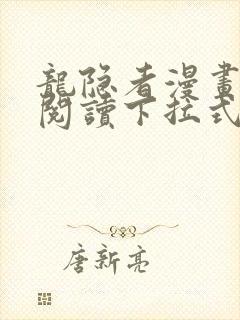 龍隐者漫畫
閱讀下拉式
唐新亮